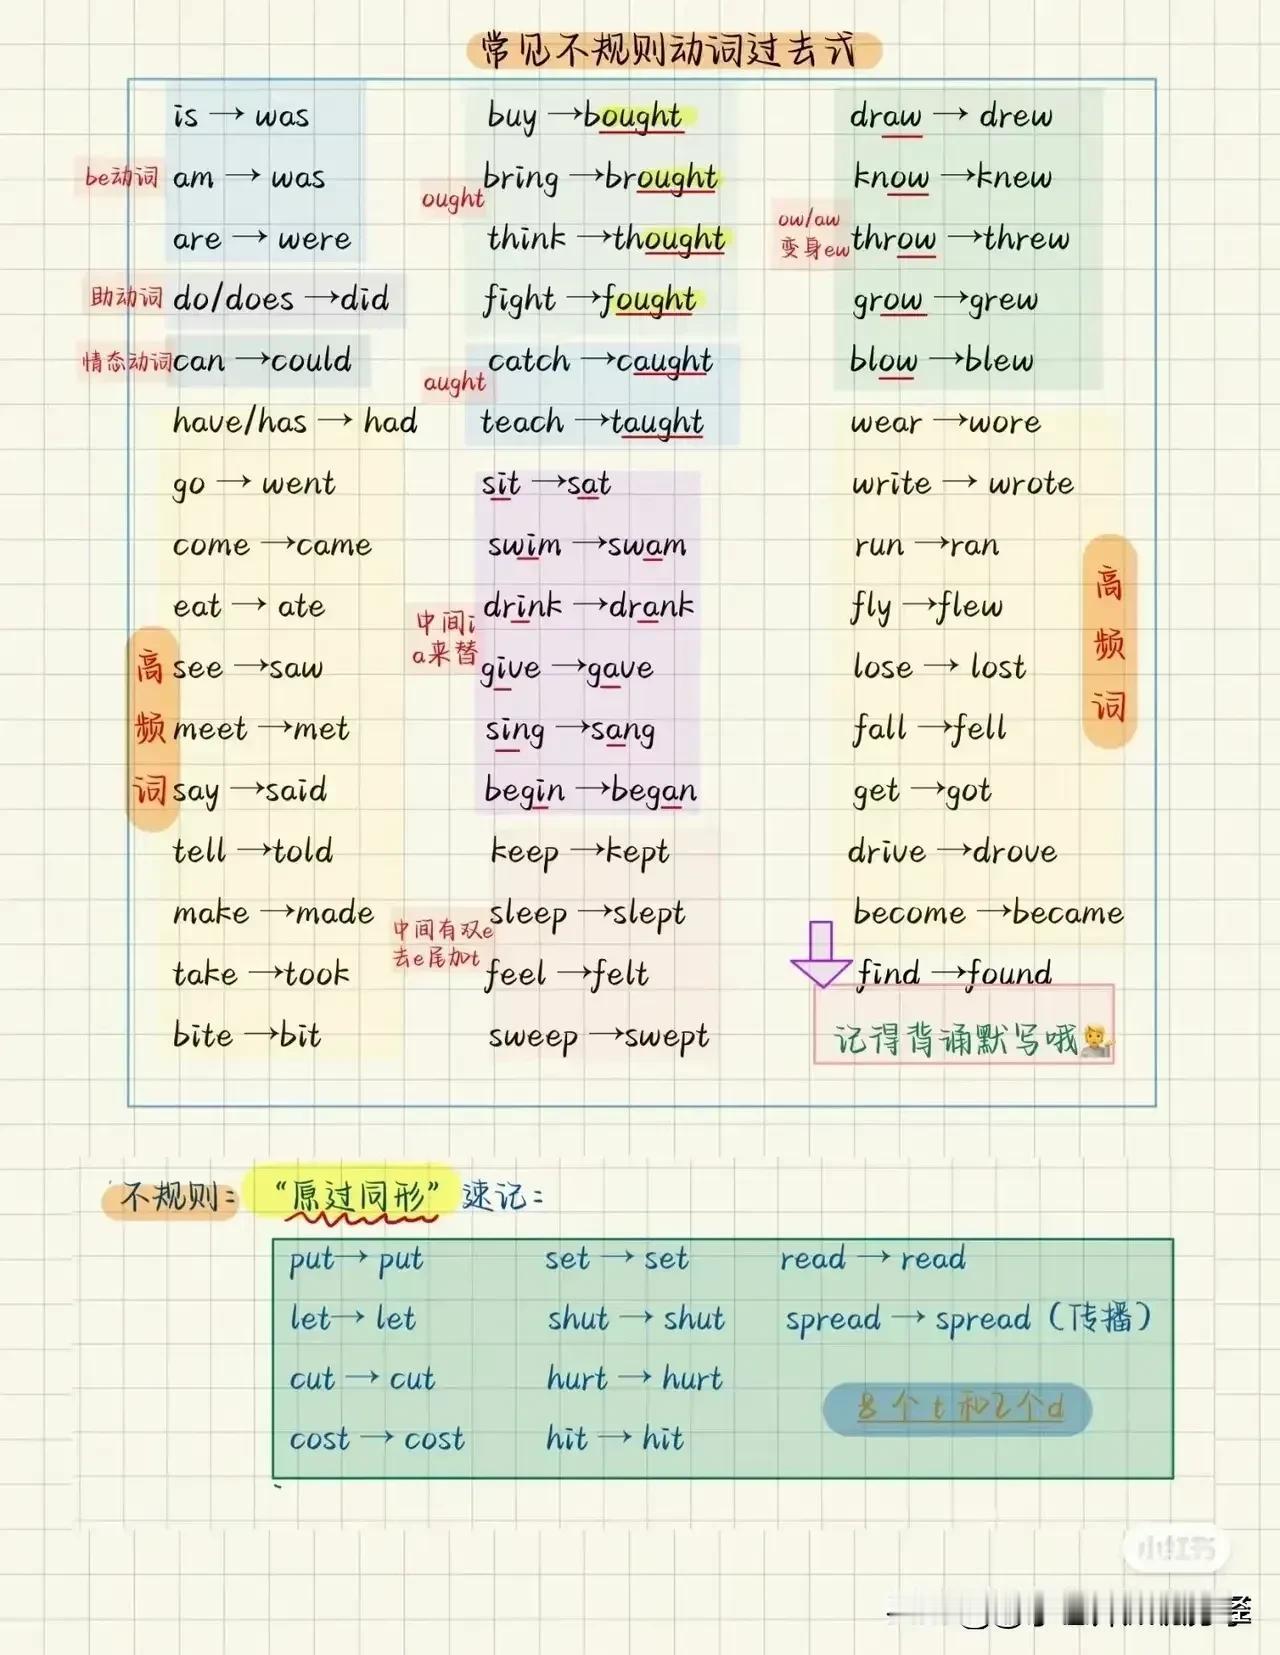 常见不规则动词过去式
be动词
is → was
am → was
are → were
助动词
do/does → did
情态动词
can → could
高频词
have/has → had
go → went
come → came
eat → ate
see → saw
meet → met
say → said
tell → told
make → made
take → took
bite → bit
ought
buy → bought
bring → brought
think → thought
fight → fought
aught
catch → caught
teach → taught
中间i
a来替
sit → sat
swim → swam
drink → drank
give → gave
sing → sang
begin → began
中间有双e
去e尾加t
keep → kept
sleep → slept
feel → felt
sweep → swept
ow/aw
变身ew
draw → drew
know → knew
throw → threw
grow → grew
blow → blew
高频词
wear → wore
write → wrote
run → ran
fly → flew
lose → lost
fall → fell
get → got
drive → drove
become → became
find → found
记得背诵默写哦
不规则: “原过同形” 速记:
put → put
let → let
cut → cut
cost → cost
set → set
shut → shut
hurt → hurt
hit → hit
read → read
spread → spread (传播)
8个t和2个d
小红书